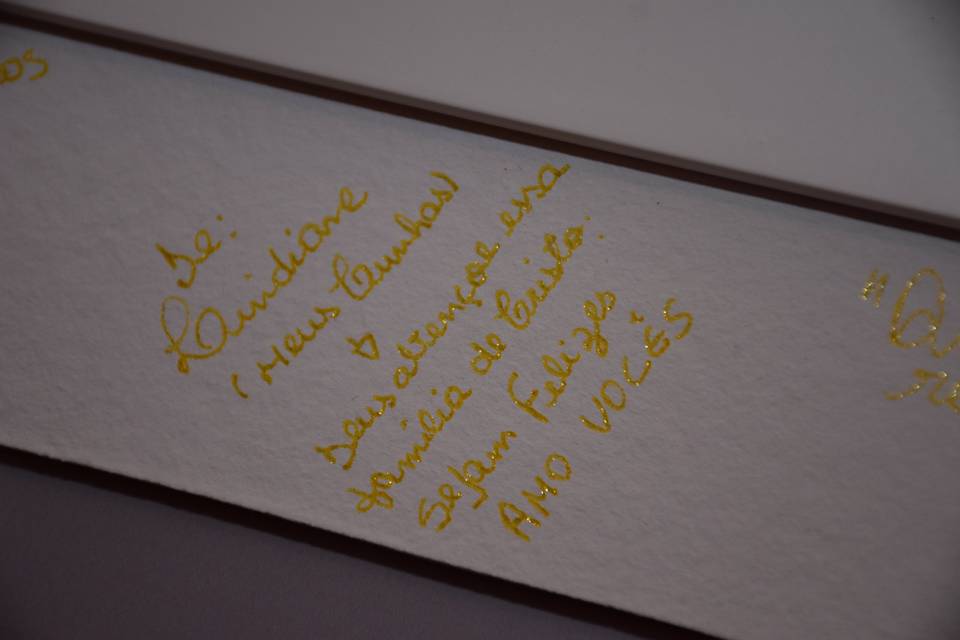 os
De:
Laindiane
(Meus Cunhas)
Deus abençoe essa
familia de Cristo.
Sejam Felizes
AMO VOCÊS